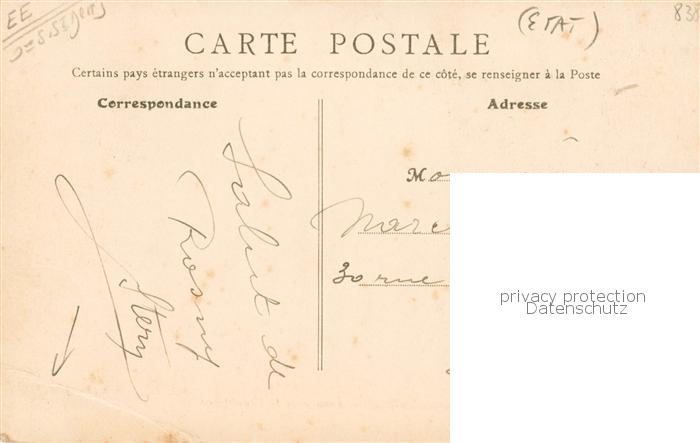 EE
(ETAT)
CARTE POSTALE
Certains pays étrangers n'acceptant pas la correspondance de ce côté, se renseigner à la Poste
Correspondance
Adresse
Salut de
Rosny
Mo
Marc
30 rue
privacy protection
Datenschutz